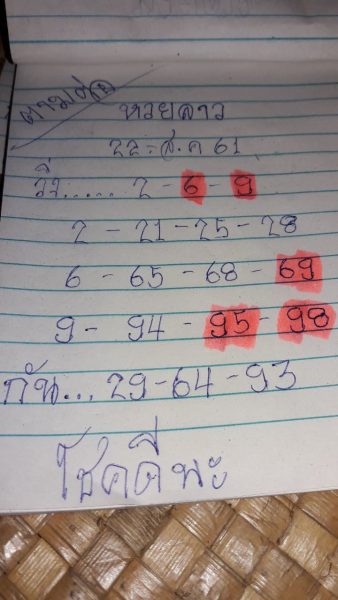 หวยลาว
22-ส.ค 61
วิ่ง..... 2-6-9
2-21-25-28
6-65-68-69
9-94-95-98
กัน... 29-64-93
โชคดีพะ